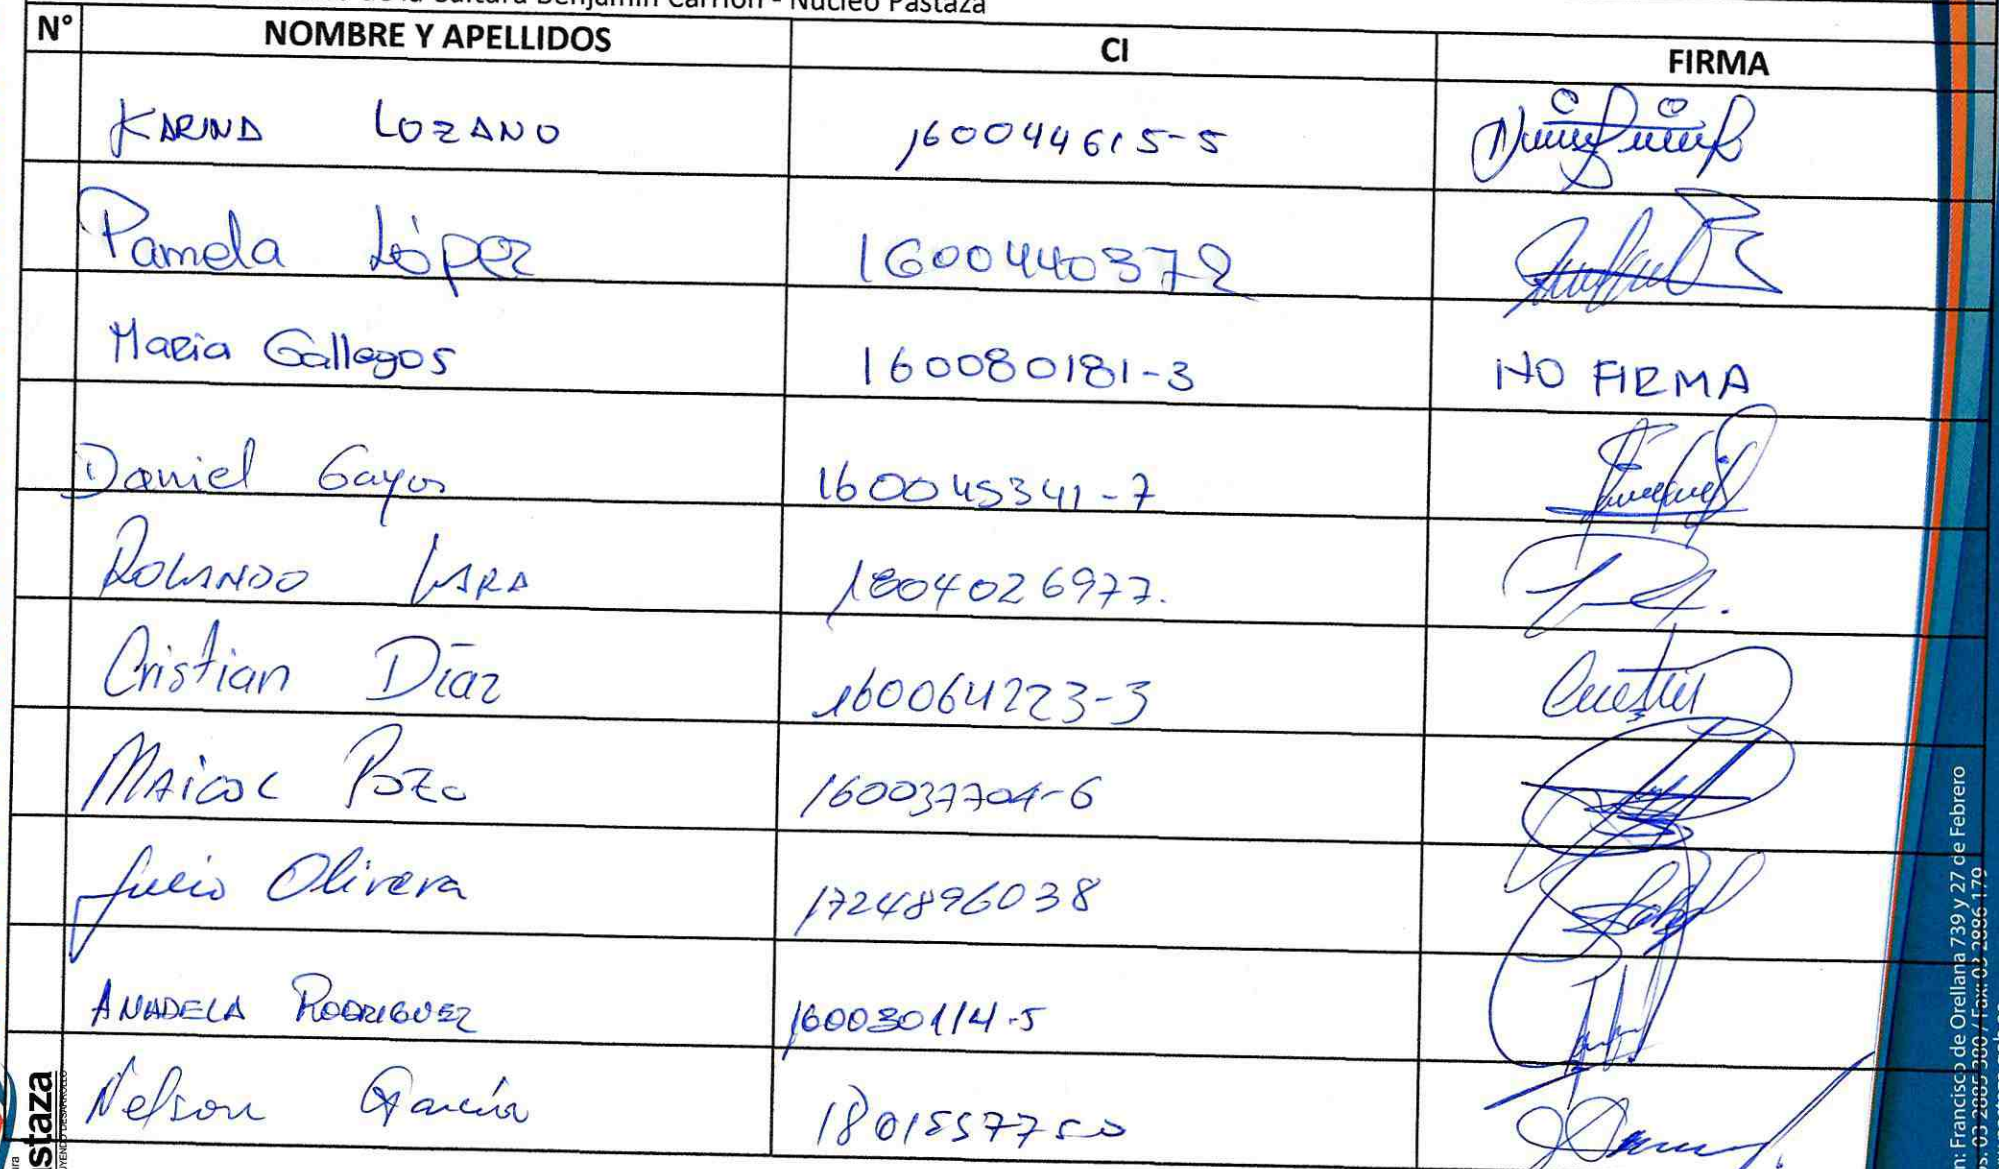 de la Cultura Benjamín Carrión - Núcleo Pastaza
N° NOMBRE Y APELLIDOS CI FIRMA
KARINA LOZANO 160044615-5
Pamela López 1600440372
Maria Gallegos 160080181-3 NO FIRMA
Daniel Gayos 160045341-7
ROLANDO LARA 1804026977.
Cristian Díaz 160064223-3
MAICOL POZO 160037704-6
Julio Olivera 1724896038
ANADELA RODRIGUEZ 160030114-5
Nelson García 1801557750
staza
YENDO DESARROLLO
n: Francisco de Orellana 739 y 27 de Febrero
s: 03 2885 380 / Fax: 03 2886 179